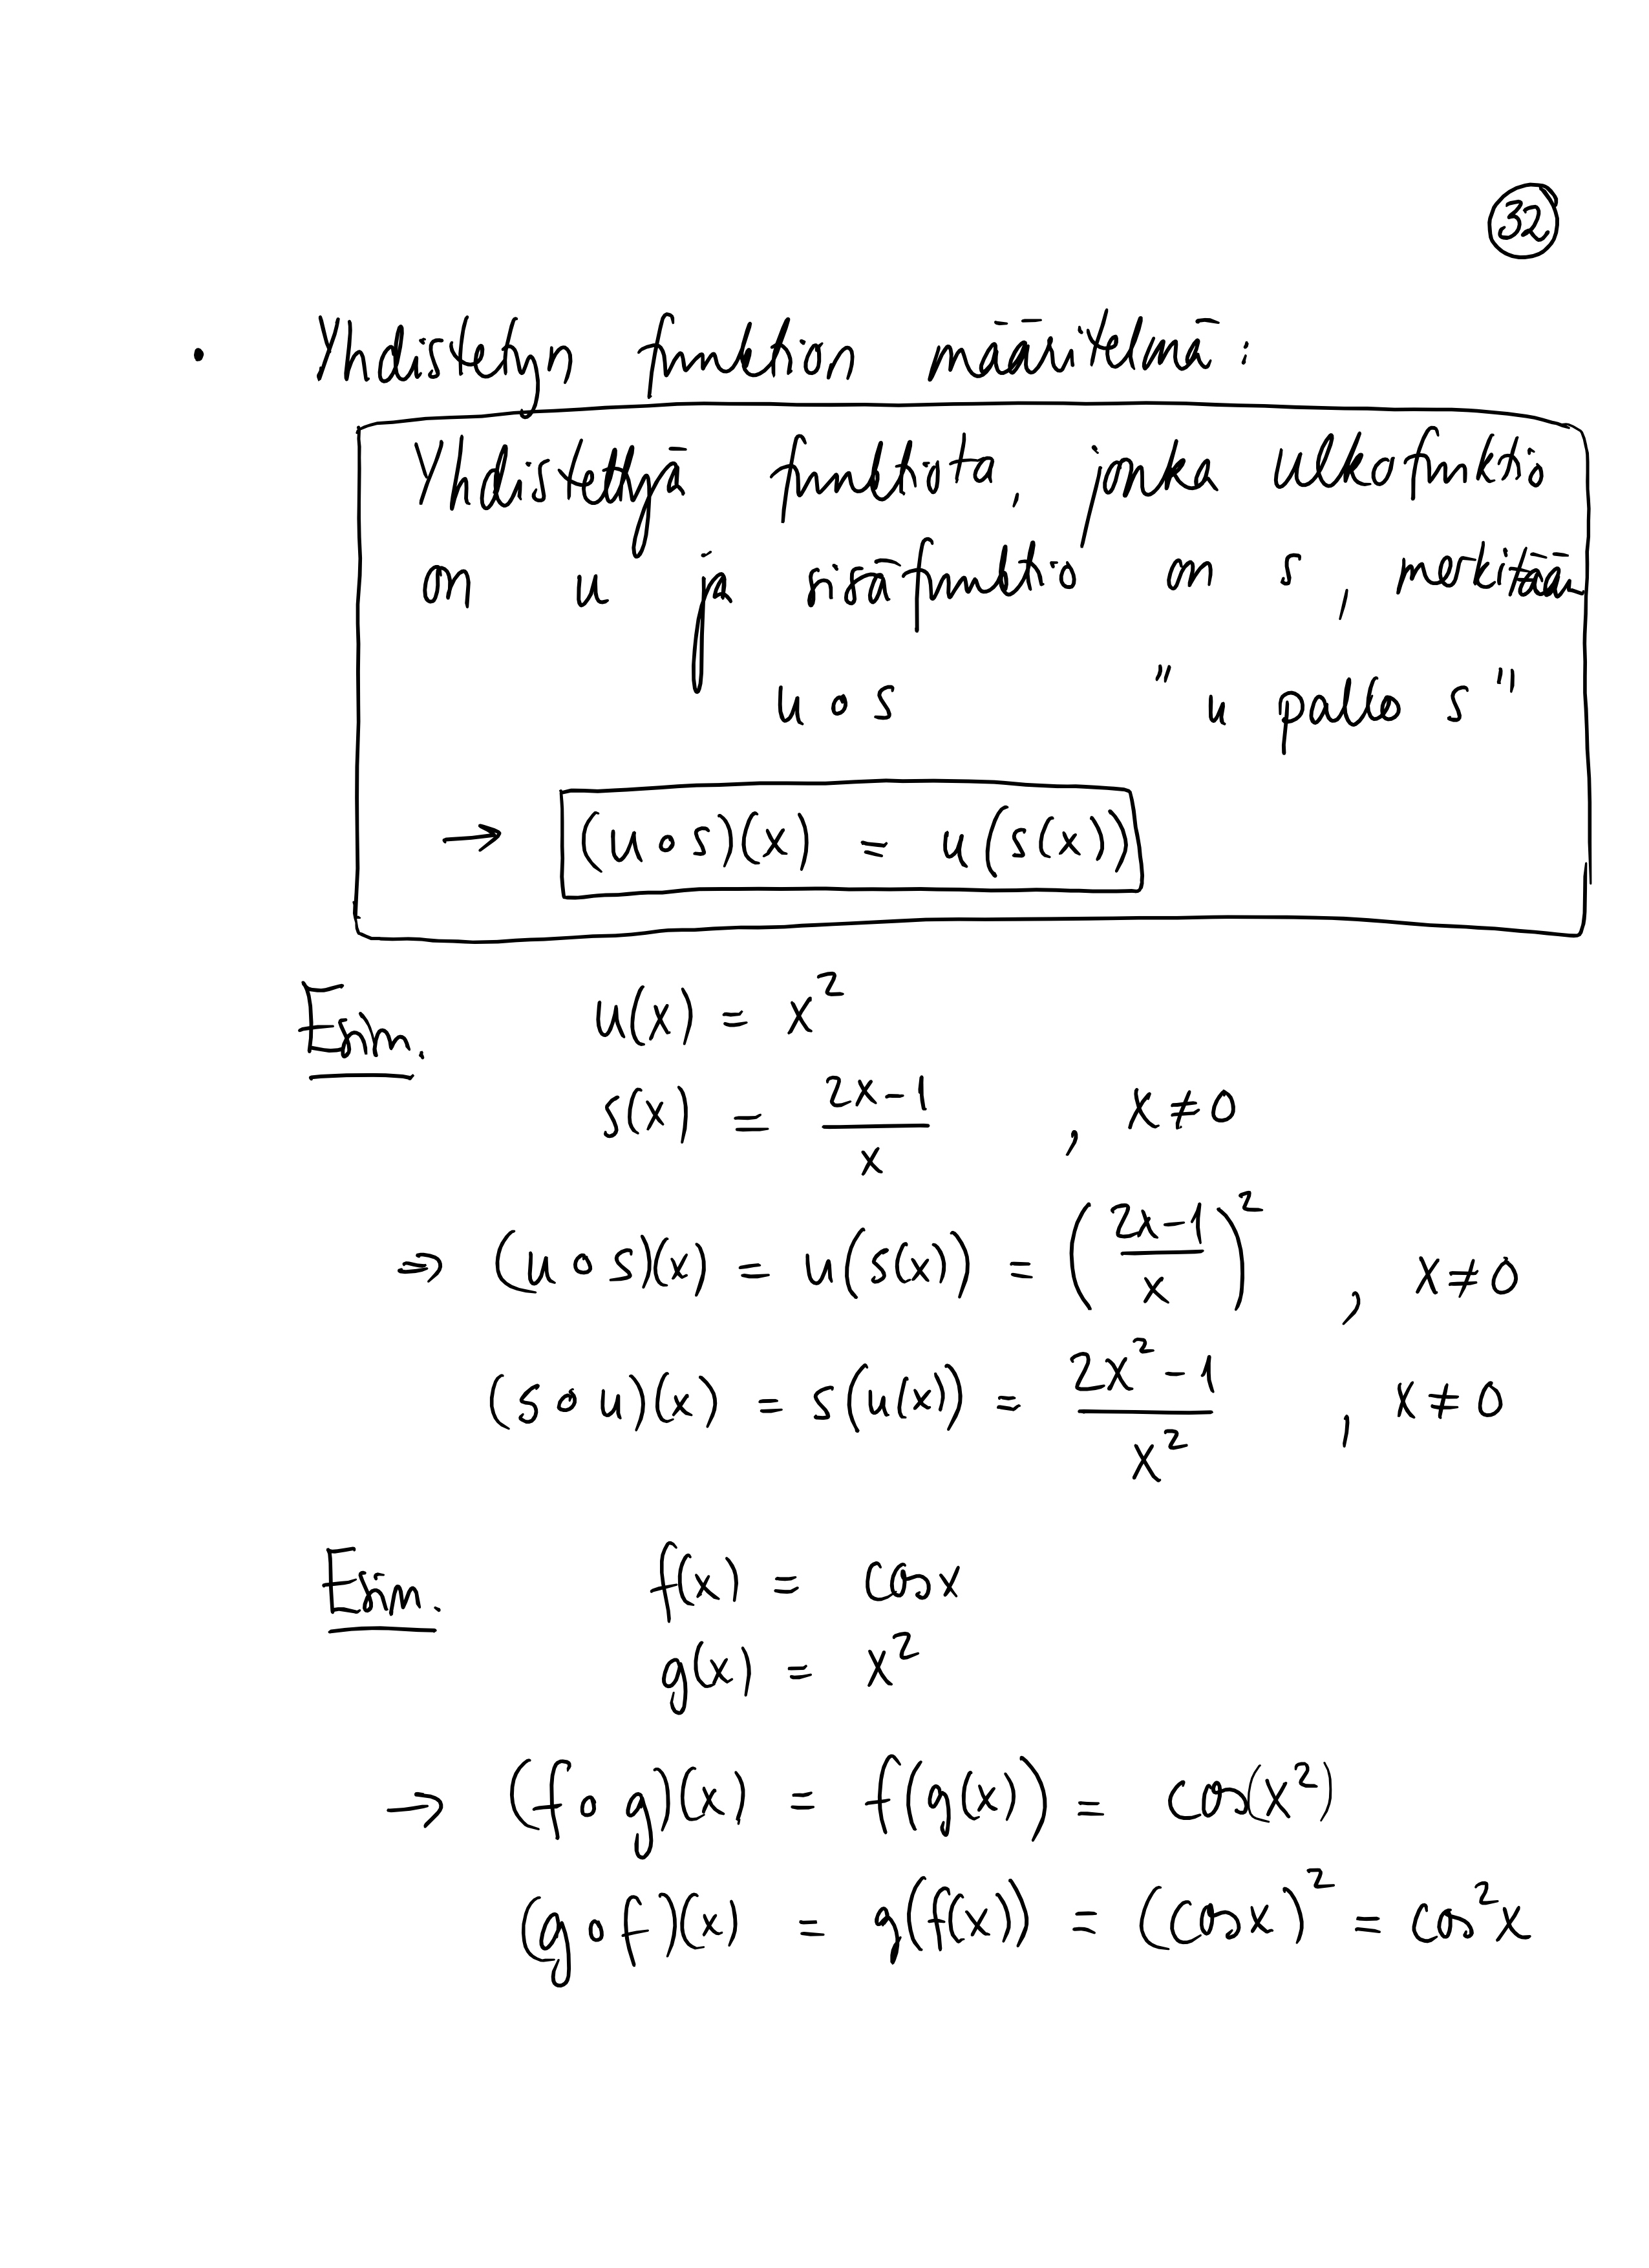 32
• Yhdistetyn funktion määritelmä:
Yhdistettyä funktiota, jonka ulkofunktio
on u ja sisäfunktio on s, merkitään
u ∘ s " u pallo s "
→ (u ∘ s)(x) = u(s(x))
Esim. u(x) = x²
s(x) = (2x−1)/x , x ≠ 0
⇒ (u ∘ s)(x) = u(s(x)) = ((2x−1)/x)² , x ≠ 0
(s ∘ u)(x) = s(u(x)) = (2x²−1)/x² , x ≠ 0
Esim. f(x) = cos x
g(x) = x²
→ (f ∘ g)(x) = f(g(x)) = cos(x²)
(g ∘ f)(x) = g(f(x)) = (cos x)² = cos²x